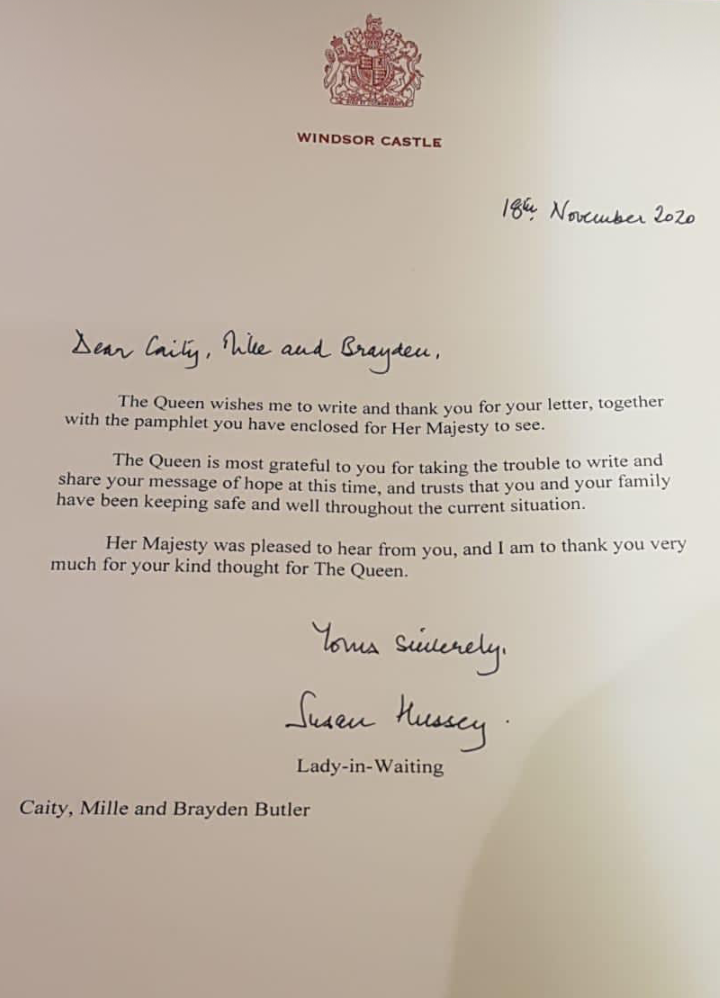 WINDSOR CASTLE
18th November 2020
Dear Caity, Mille and Brayden,
The Queen wishes me to write and thank you for your letter, together
with the pamphlet you have enclosed for Her Majesty to see.
The Queen is most grateful to you for taking the trouble to write and
share your message of hope at this time, and trusts that you and your family
have been keeping safe and well throughout the current situation.
Her Majesty was pleased to hear from you, and I am to thank you very
much for your kind thought for The Queen.
Yours sincerely,
Susan Hussey.
Lady-in-Waiting
Caity, Mille and Brayden Butler